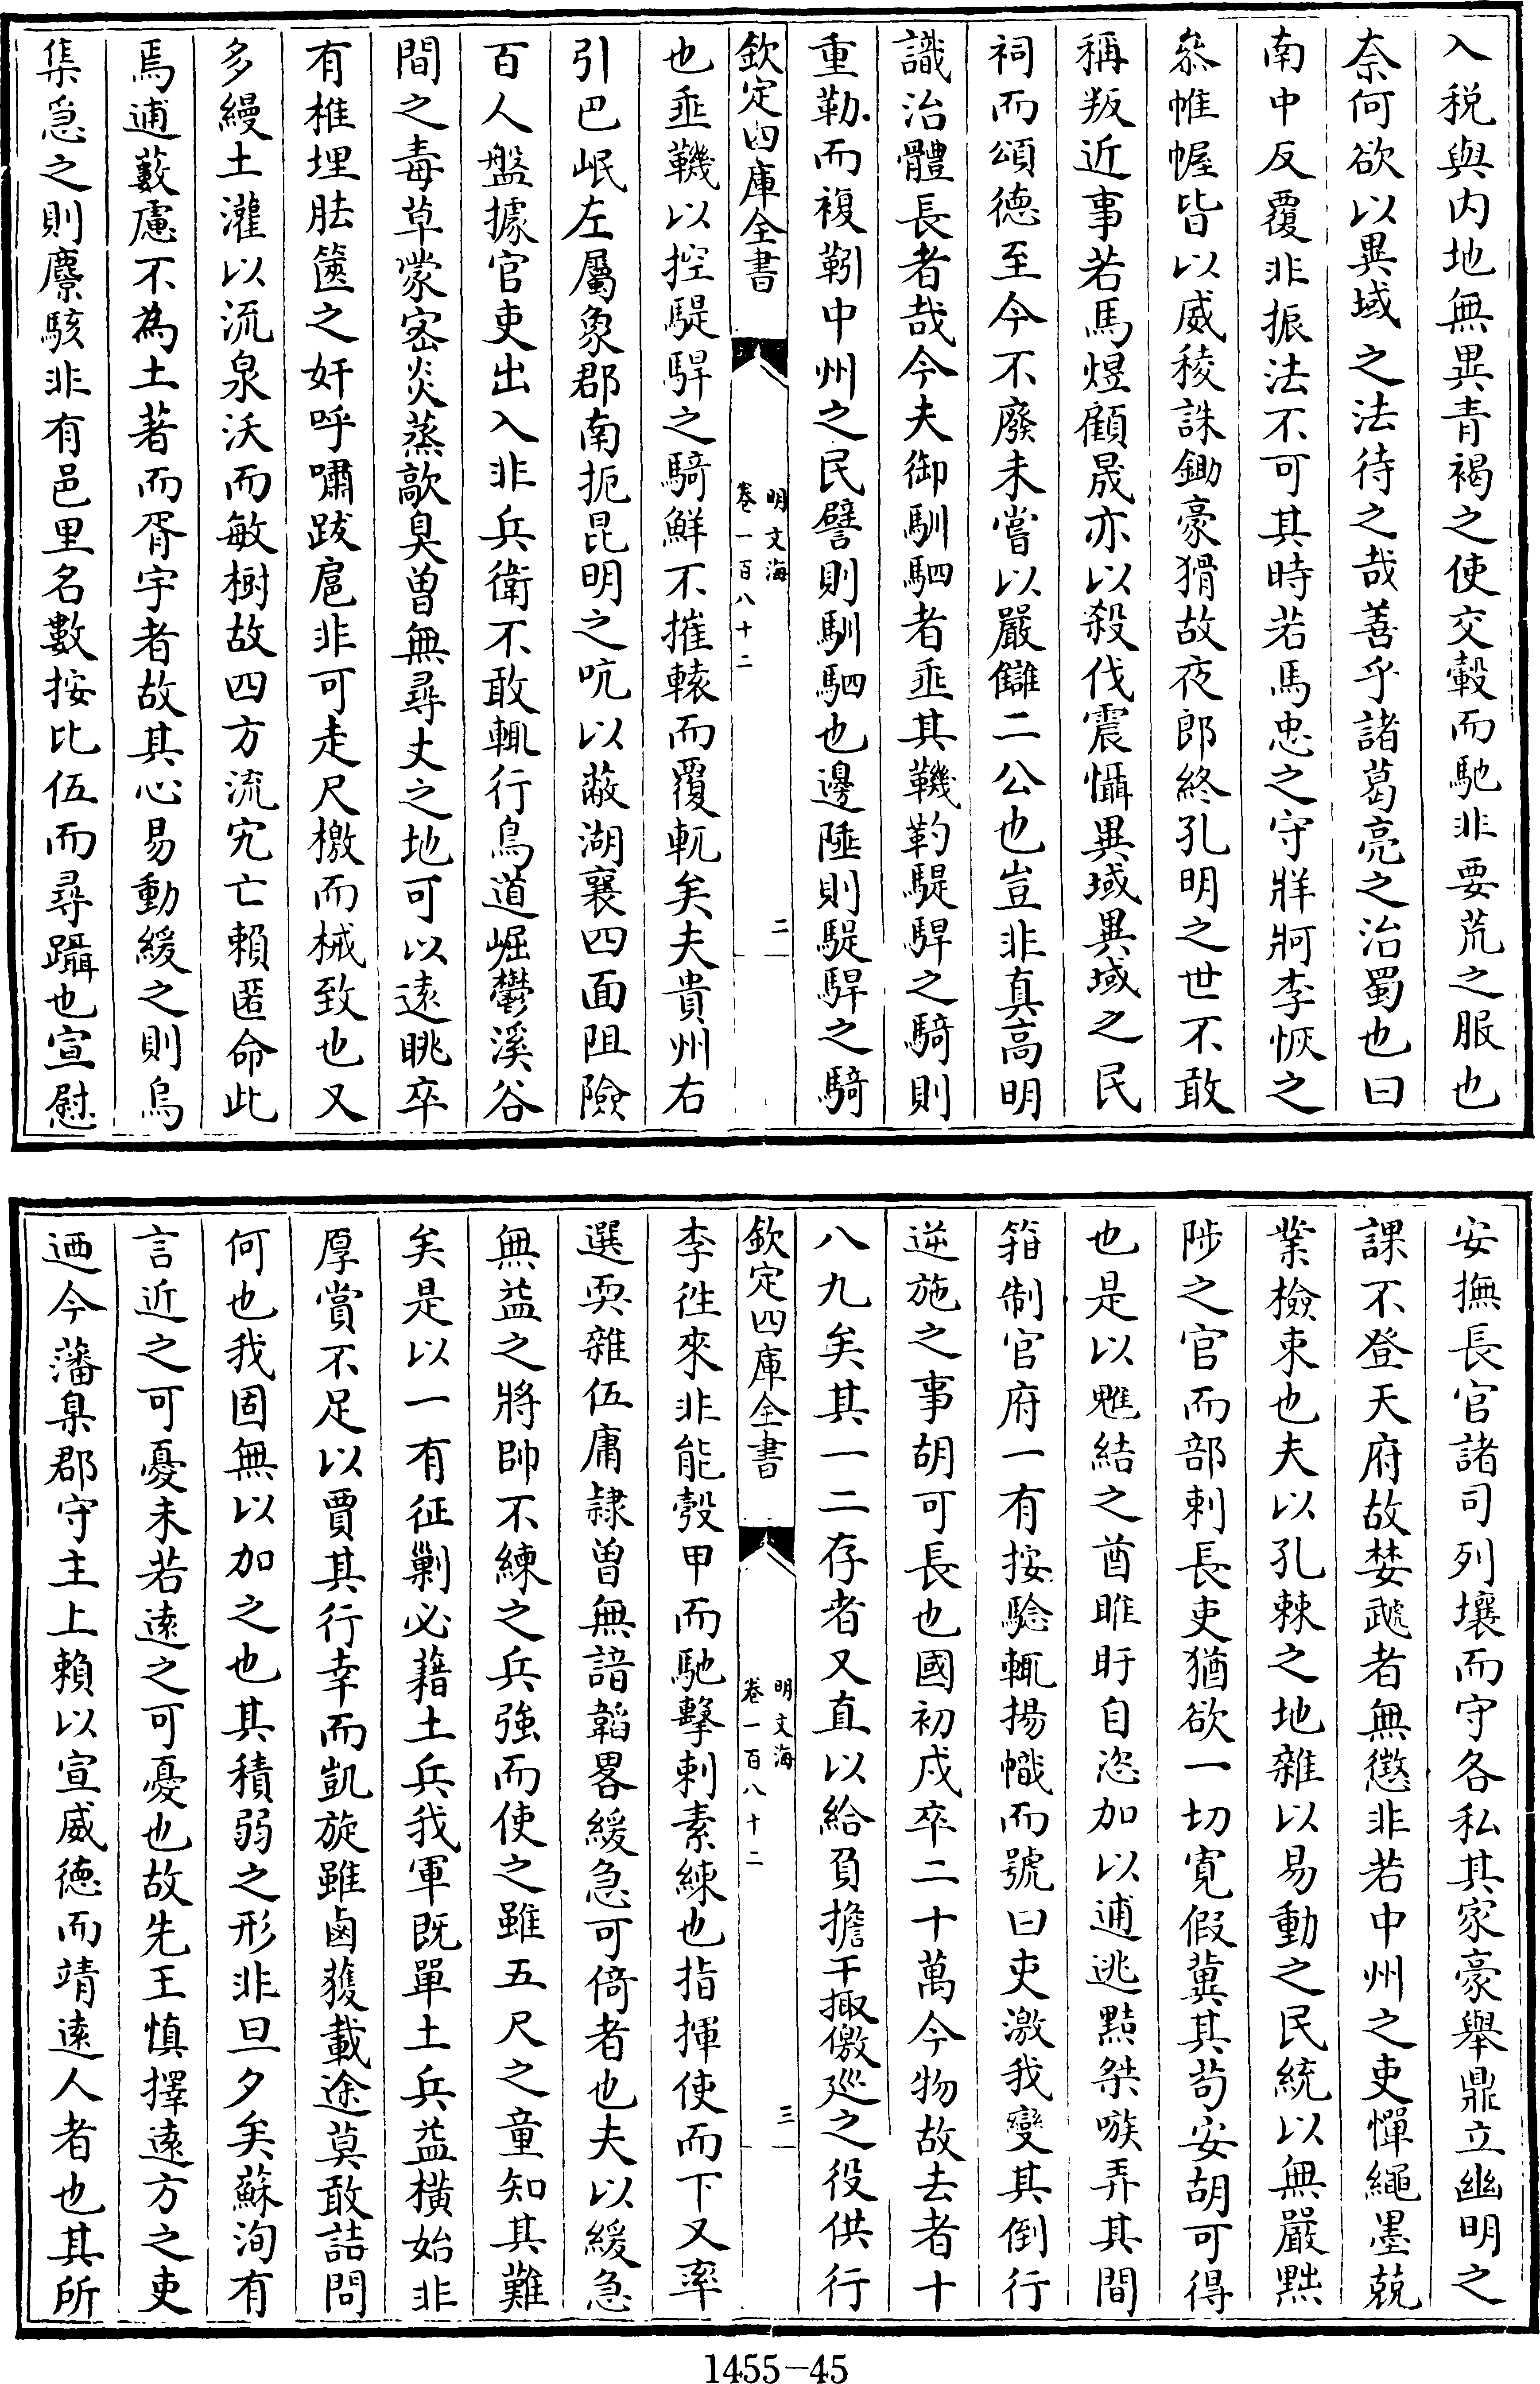 入税與内地無異青褐之使交轂而馳非要荒之服也
奈何欲以異域之法待之哉善乎諸葛亮之治蜀也曰
南中反覆非振法不可其時若馬忠之守牂牁李恢之
叅帷幄皆以威稜誅鋤豪猾故夜郎終孔明之世不敢
稱叛近事若馬煜顧晟亦以殺伐震懾異域異域之民
祠而頌德至今不廢未嘗以嚴讎二公也豈非真高明
識治體長者哉今夫御馴駟者亟其鞿靮騠駻之騎則
重勒而複靷中州之民譬則馴駟也邊陲則騠駻之騎
欽定四庫全書
明文海
卷一百八十二
二
也亟鞿以控騠駻之騎鮮不摧轅而覆軏矣夫貴州右
引巴岷左屬象郡南扼昆明之吭以蔽湖襄四面阻險
百人盤據官吏出入非兵衛不敢輒行鳥道崛鬱溪谷
間之毒草蒙密炎蒸歊臭曾無尋丈之地可以遠眺卒
有椎埋胠篋之奸呼嘯跋扈非可走尺檄而械致也又
多縵土灌以流泉沃而敏樹故四方流宄亡賴匿命此
焉逋藪慮不為土著而胥宇者故其心易動緩之則烏
集急之則麏駭非有邑里名數按比伍而尋躡也宣慰
安撫長官諸司列壤而守各私其家豪舉鼎立幽明之
課不登天府故婪虣者無懲非若中州之吏憚繩墨兢
業檢束也夫以孔棘之地雜以易動之民統以無嚴黜
陟之官而部刺長吏猶欲一切寛假冀其苟安胡可得
也是以魋結之酋睢盱自恣加以逋逃黠桀嗾弄其間
箝制官府一有按驗輒揚幟而號曰吏激我變其倒行
逆施之事胡可長也國初戍卒二十萬今物故去者十
八九矣其一二存者又直以給負擔干掫儌廵之役供行
欽定四庫全書
明文海
卷一百八十二
三
李徃來非能彀甲而馳擊刺素練也指揮使而下又率
選耎雜伍庸隷曾無諳韜畧緩急可倚者也夫以緩急
無益之將帥不練之兵強而使之雖五尺之童知其難
矣是以一有征剿必藉土兵我軍既單土兵益橫始非
厚賞不足以賈其行幸而凱旋雖鹵獲載途莫敢詰問
何也我固無以加之也其積弱之形非旦夕矣蘇洵有
言近之可憂未若遠之可憂也故先王慎擇遠方之吏
廼今藩臬郡守主上賴以宣威德而靖遠人者也其所
1455-45